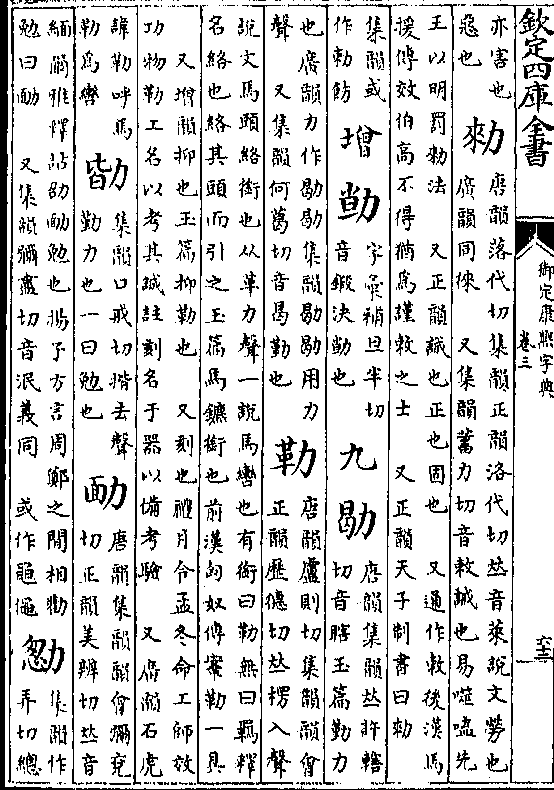 欽定四庫全書
御定康熙字典
卷三
六十二
亦害也
惡也
勑
唐韻落代切集韻正韻洛代切𠀤音萊說文勞也
廣韻同徠　又集韻蓄力切音敕誡也易噬嗑先
王以明罰勑法　又正韻誡也正也固也　又通作敕後漢馬
援傳效伯高不得猶為謹敕之士　又正韻天子制書曰勑
集韻或
作勅飭
增
字彚補旦半切
音鍛決也
九
勖
唐韻集韻𠀤許轄
切音瞎玉篇勤力
也廣韻力作勖勖集韻勖勖用力
聲　又集韻何葛切音曷勤也
勒
唐韻盧則切集韻韻會
正韻歷德切𠀤楞入聲
說文馬頭絡銜也从革力聲一說馬轡也有銜曰勒無曰羈釋
名絡也絡其頭而引之玉篇馬鑣銜也前漢匈奴傳鞌勒一具
又增韻抑也玉篇抑勒也　又刻也禮月令孟冬命工師效
功物勒工名以考其誠註刻名于器以備考驗　又廣韻石虎
諱勒呼馬
勒為轡
集韻口戒切揩去聲
勤力也一曰勉也
勔
唐韻集韻韻會彌兗
切正韻美辨切𠀤音
緬爾雅釋詁勔勉也揚子方言周鄭之閒相勸
勉曰勔　又集韻彌盡切音泯義同　或作黽僶
集韻作
弄切總